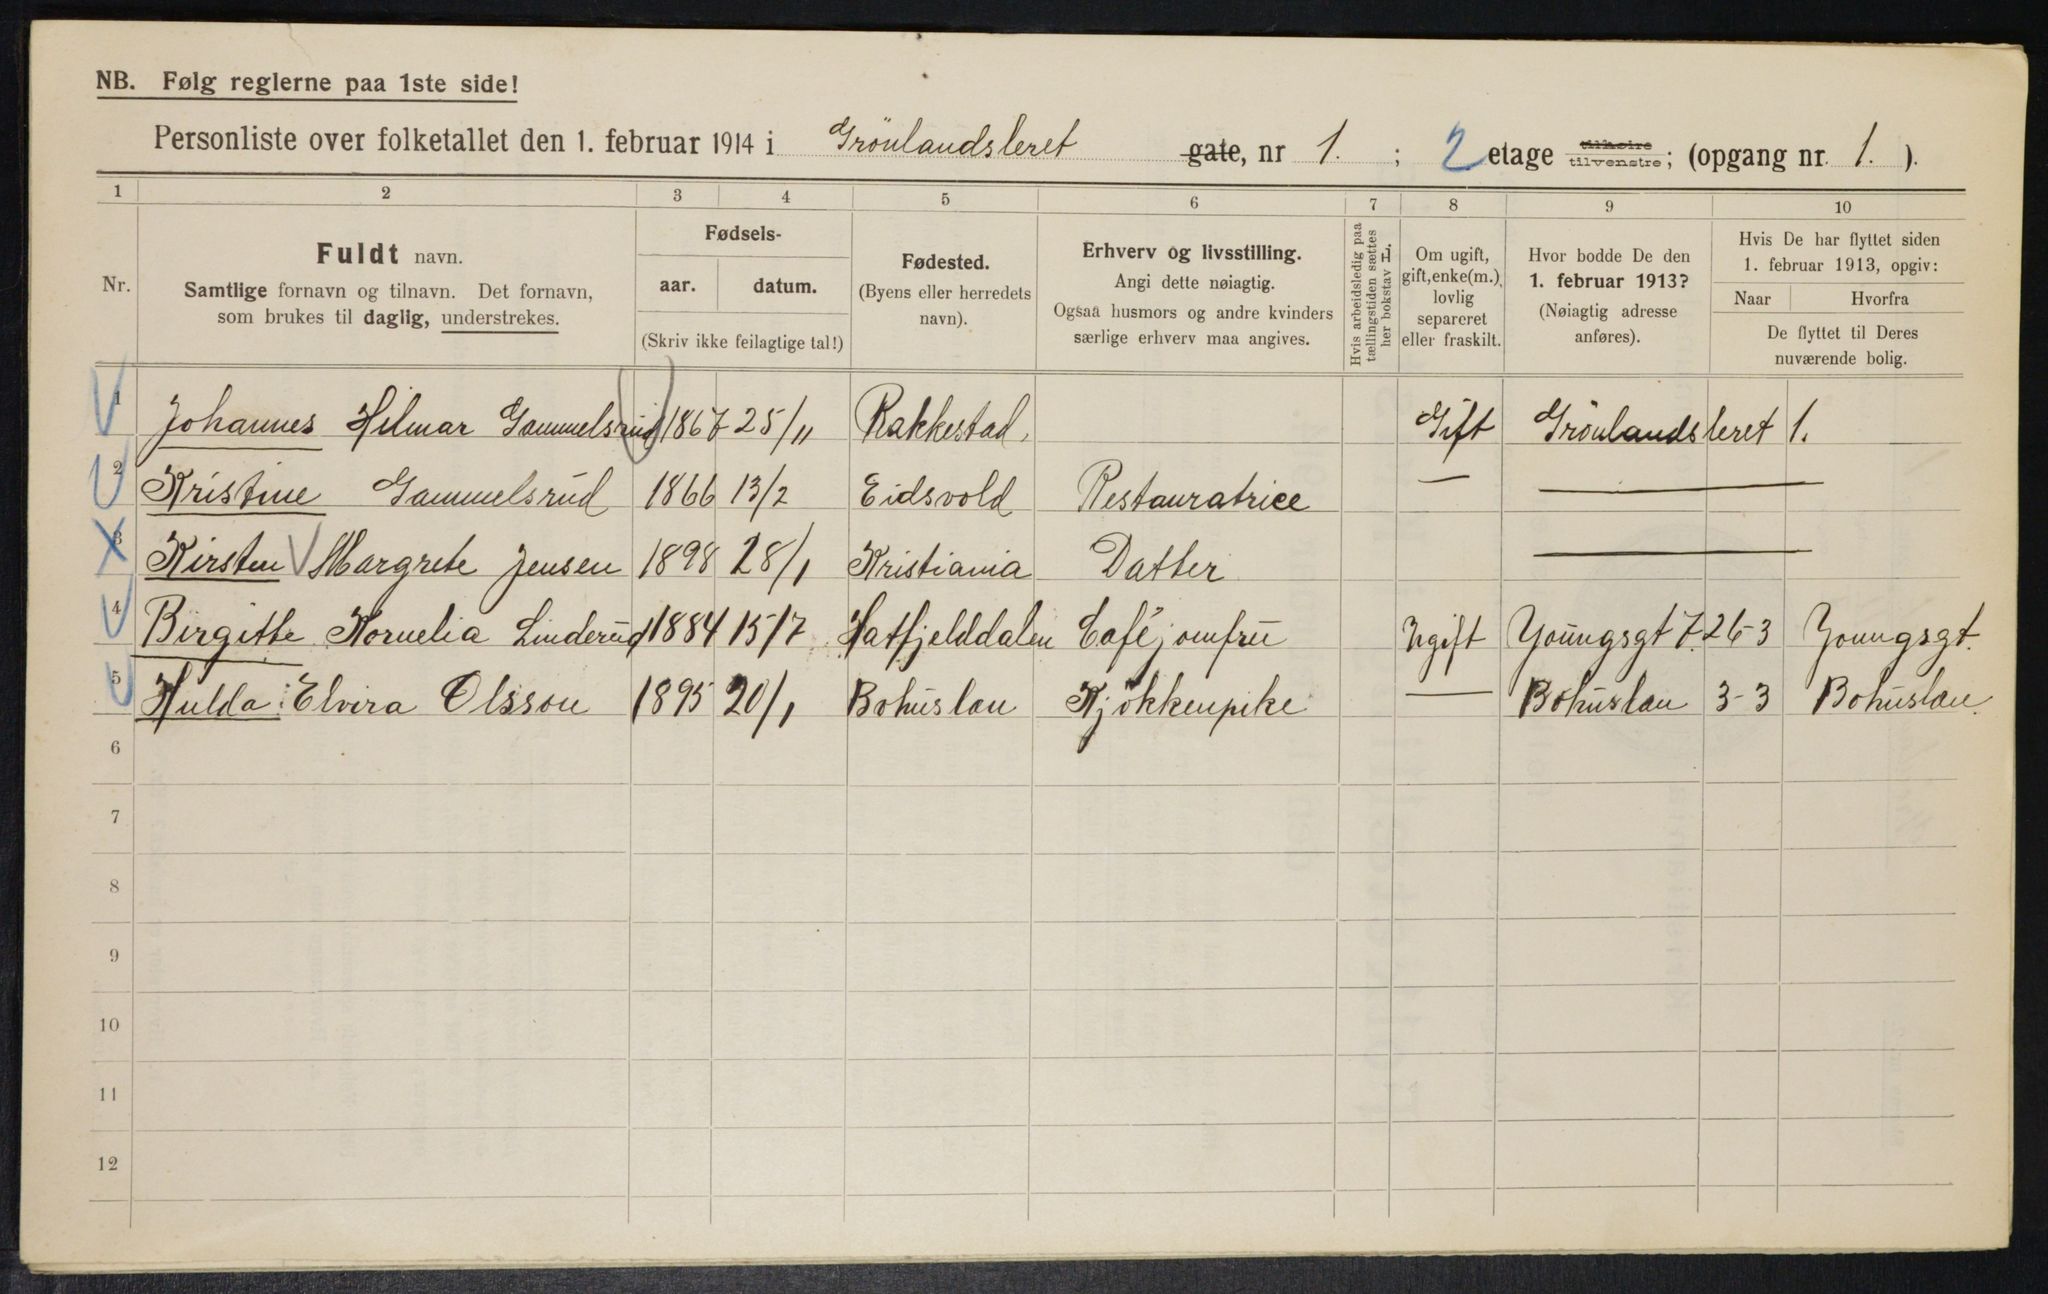 NB. Følg reglerne paa 1ste side!
Personliste over folketallet den 1. februar 1914 i Grönlandsleret gate, nr 1. ; 2 etage tilhøire tilvenstre; (opgang nr. 1. ).
1 2 3 4 5 6 7 8 9 10
Nr.
Fuldt navn.
Samtlige fornavn og tilnavn. Det fornavn,
som brukes til daglig, understrekes.
Fødsels-
aar. datum.
(Skriv ikke feilagtige tal!)
Fødested.
(Byens eller herredets
navn).
Erhverv og livsstilling.
Angi dette nøiagtig.
Ogsaa husmors og andre kvinders
særlige erhverv maa angives.
Hvis arbeidsledig paa
tællingstiden sættes
her bokstav L.
Om ugift,
gift, enke(m.),
lovlig
separeret
eller fraskilt.
Hvor bodde De den
1. februar 1913?
(Nøiagtig adresse
anføres).
Hvis De har flyttet siden
1. februar 1913, opgiv:
Naar Hvorfra
De flyttet til Deres
nuværende bolig.
1 Johannes Hilmar Gammelsrud 1867 25/11 Rakkestad, Gift Grönlandsleret 1.
2 Kristine Gammelsrud 1866 13/2 Eidsvold Restauratrice — —
3 Kirsten Margrete Jensen 1898 28/1 Kristiania Datter —
4 Birgitte Kornelia Linderud 1884 15/7 Hatfjelddalen Caféjomfru Ugift Youngsgt 7. 26-3 Youngsgt.
5 Hulda Elvira Olsson 1895 20/1 Bohuslan Kjökkenpike — Bohuslan 3-3 Bohuslan.
6
7
8
9
10
11
12